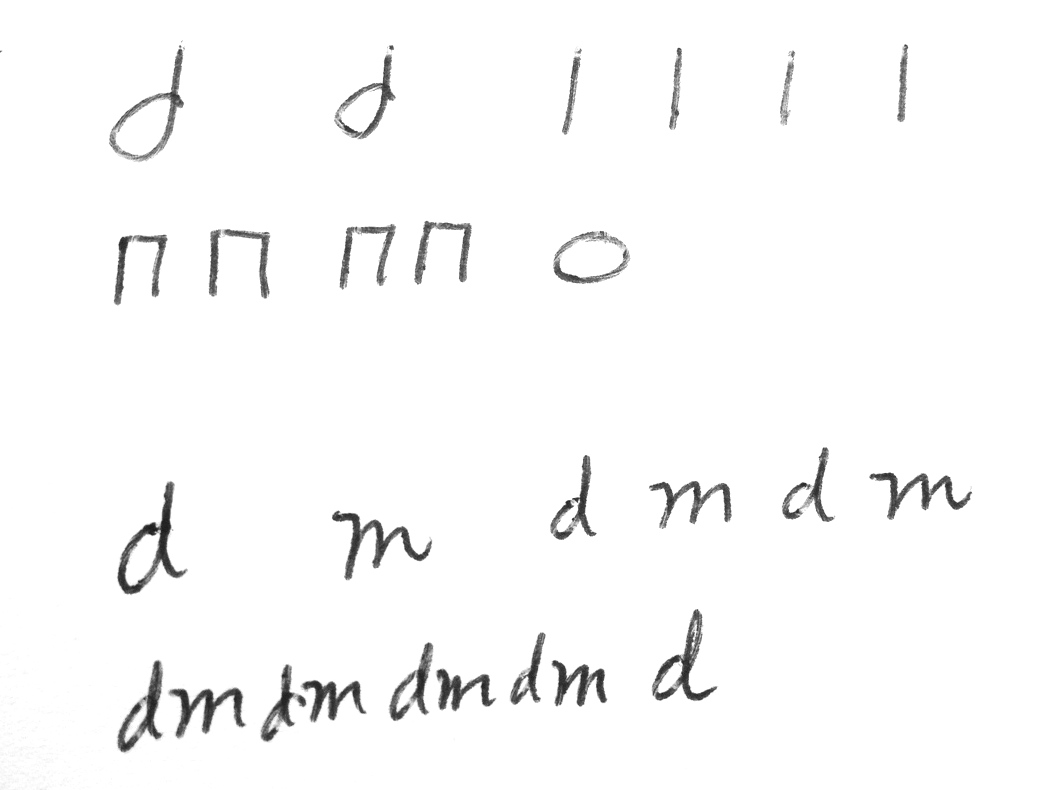 d d | | | |
⊓ ⊓ ⊓ ⊓ o
d m d m d m
dm dm dm dm d